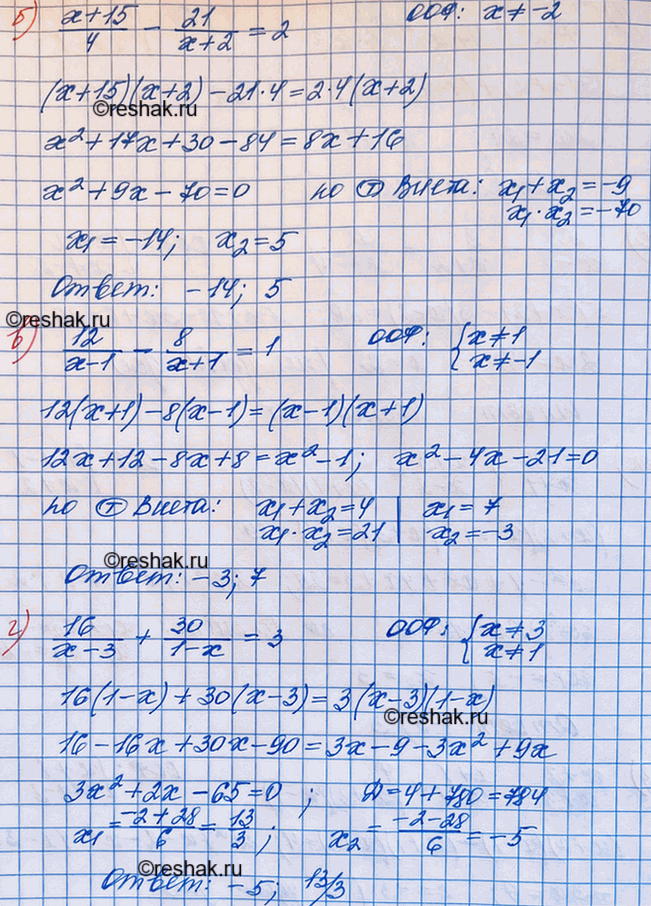 б) (x+15)/4 - 21/(x+2) = 2 ООФ: x≠-2
(x+15)(x+2)-21·4=2·4(x+2)
©reshak.ru
x²+17x+30-84=8x+16
x²+9x-70=0 по Ⓣ Виета: x₁+x₂=-9
x₁·x₂=-70
x₁=-14; x₂=5
Ответ: -14; 5
©reshak.ru
в) 12/(x-1) - 8/(x+1) = 1 ООФ: {x≠1
x≠-1
12(x+1)-8(x-1)=(x-1)(x+1)
12x+12-8x+8=x²-1; x²-4x-21=0
по Ⓣ Виета: x₁+x₂=4 | x₁=7
x₁·x₂=21 | x₂=-3
©reshak.ru
Ответ: -3; 7
г) 16/(x-3) + 30/(1-x) = 3 ООФ: {x≠3
x≠1
16(1-x)+30(x-3)=3(x-3)(1-x)
©reshak.ru
16-16x+30x-90=3x-9-3x²+9x
3x²+2x-65=0; Д=4+780=784
x₁=(-2+28)/6=13/3; x₂=(-2-28)/6=-5
©reshak.ru
Ответ: -5; 13/3